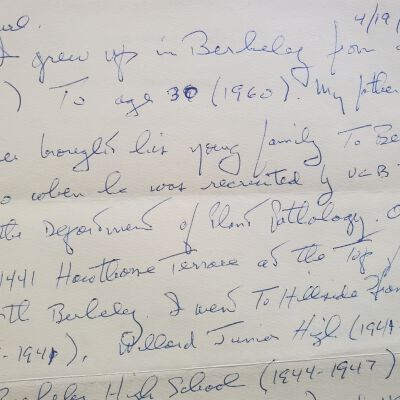 4/19/
I grew up in Berkeley from
) To age 30 (1960). My father
brought his young family To Be
when he was recruited by UCB
the Department of Plant Pathology. O
1441 Hawthorne Terrace at the Top
th Berkeley. I went To Hillside from
-1941). Willard Junior High (1941-
Berkeley High School (1944-1947)